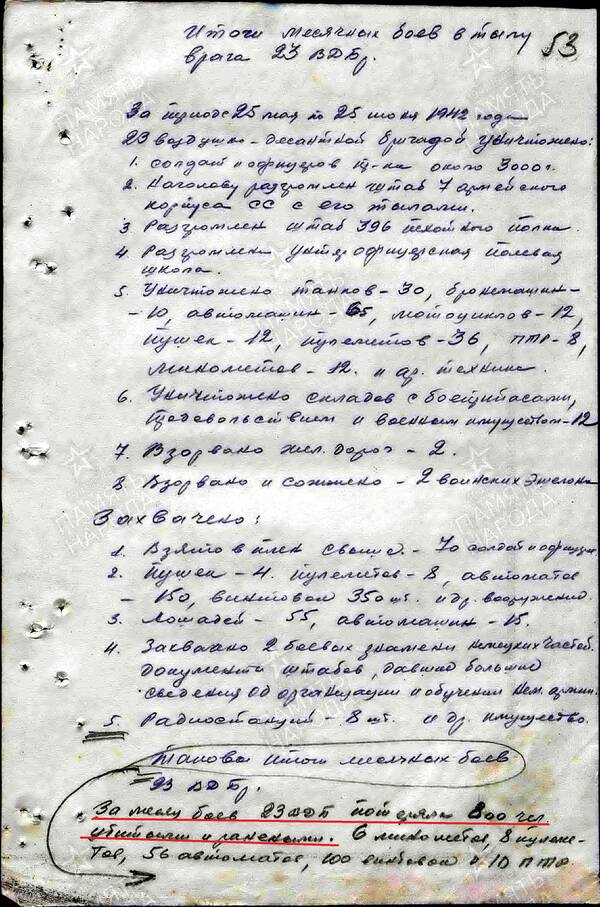 Итоги месячных боев в тылу
врага 23 ВДБр.
53
За период с 25 мая по 25 июня 1942 года
23 воздушно-десантной бригадой уничтожено:
1. Солдат и офицеров пр-ка около 3000 г.
2. Наголову разгромлен штаб 7 армейского
корпуса СС с его тылами.
3 Разгромлен штаб 396 пехотного полка.
4. Разгромлена унтер офицерская полевая
школа.
5. Уничтожено танков - 30, бронемашин -
- 10, автомашин - 65, мотоциклов - 12,
пушек - 12, пулеметов - 36, ПТР - 8,
минометов - 12. и др. техники.
6. Уничтожено складов с боеприпасами,
продовольствием и военным имуществом - 12
7. Взорвано жел. дорог - 2.
8. Взорвано и сожжено - 2 воинских эшелона
Захвачено:
1. Взято в плен свыше - 70 солдат и офицеров
2. Пушек - 4. пулеметов - 8, автоматов
- 150, винтовок 350 шт. и др. вооружений.
3. Лошадей - 55, автомашин - 15.
4. Захвачено 2 боевых знамени немецких частей.
Документы штабов, давшие большие
сведения об организации и обучении нем. армии.
5. Радиостанций - 8 шт. и др. имущество.
Таковы итоги месячных боев
23 ВДБр.
За месяц боев 23 ВДБ потеряла 800 чел
убитыми и ранеными. 6 минометов, 8 пулеме-
тов, 56 автоматов, 100 винтовок и 10 ПТР.
ПАМЯТЬ
НАРОДА